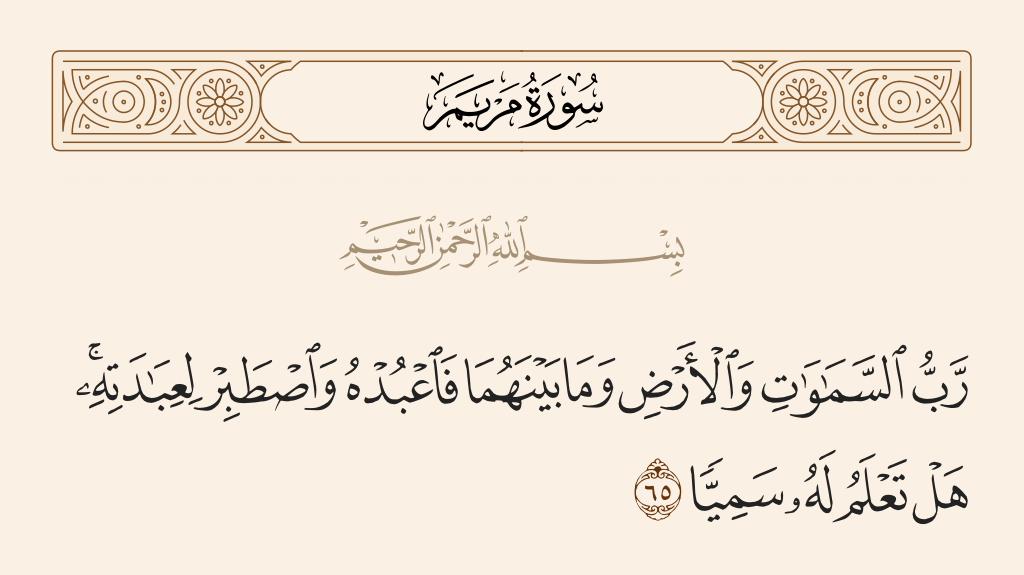 سُورَةُ مَرْيَمَ
بِسْمِ ٱللَّهِ ٱلرَّحْمَٰنِ ٱلرَّحِيمِ
رَّبُّ ٱلسَّمَٰوَٰتِ وَٱلْأَرْضِ وَمَا بَيْنَهُمَا فَٱعْبُدْهُ وَٱصْطَبِرْ لِعِبَٰدَتِهِۦ ۚ
هَلْ تَعْلَمُ لَهُۥ سَمِيًّا ٦٥